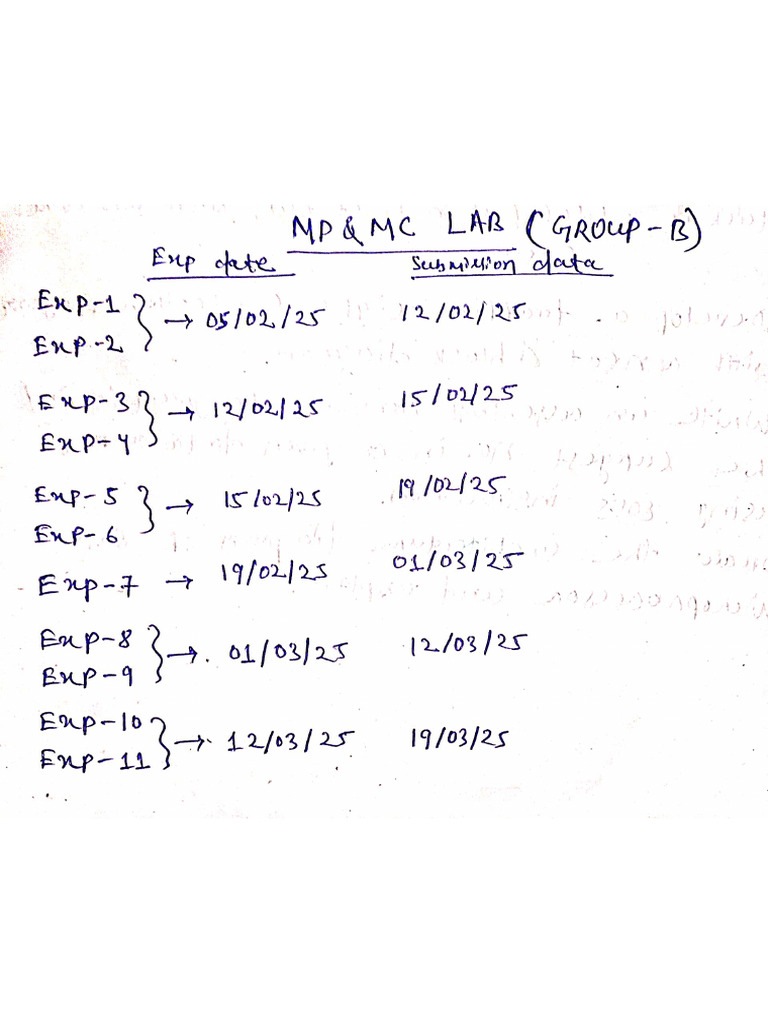 MP & MC LAB (GROUP-B)
Exp date Submission data
Exp-1 } → 05/02/25 12/02/25
Exp-2
Exp-3 } → 12/02/25 15/02/25
Exp-4
Exp-5 } → 15/02/25 19/02/25
Exp-6
Exp-7 → 19/02/25 01/03/25
Exp-8 } → 01/03/25 12/03/25
Exp-9
Exp-10 } → 12/03/25 19/03/25
Exp-11